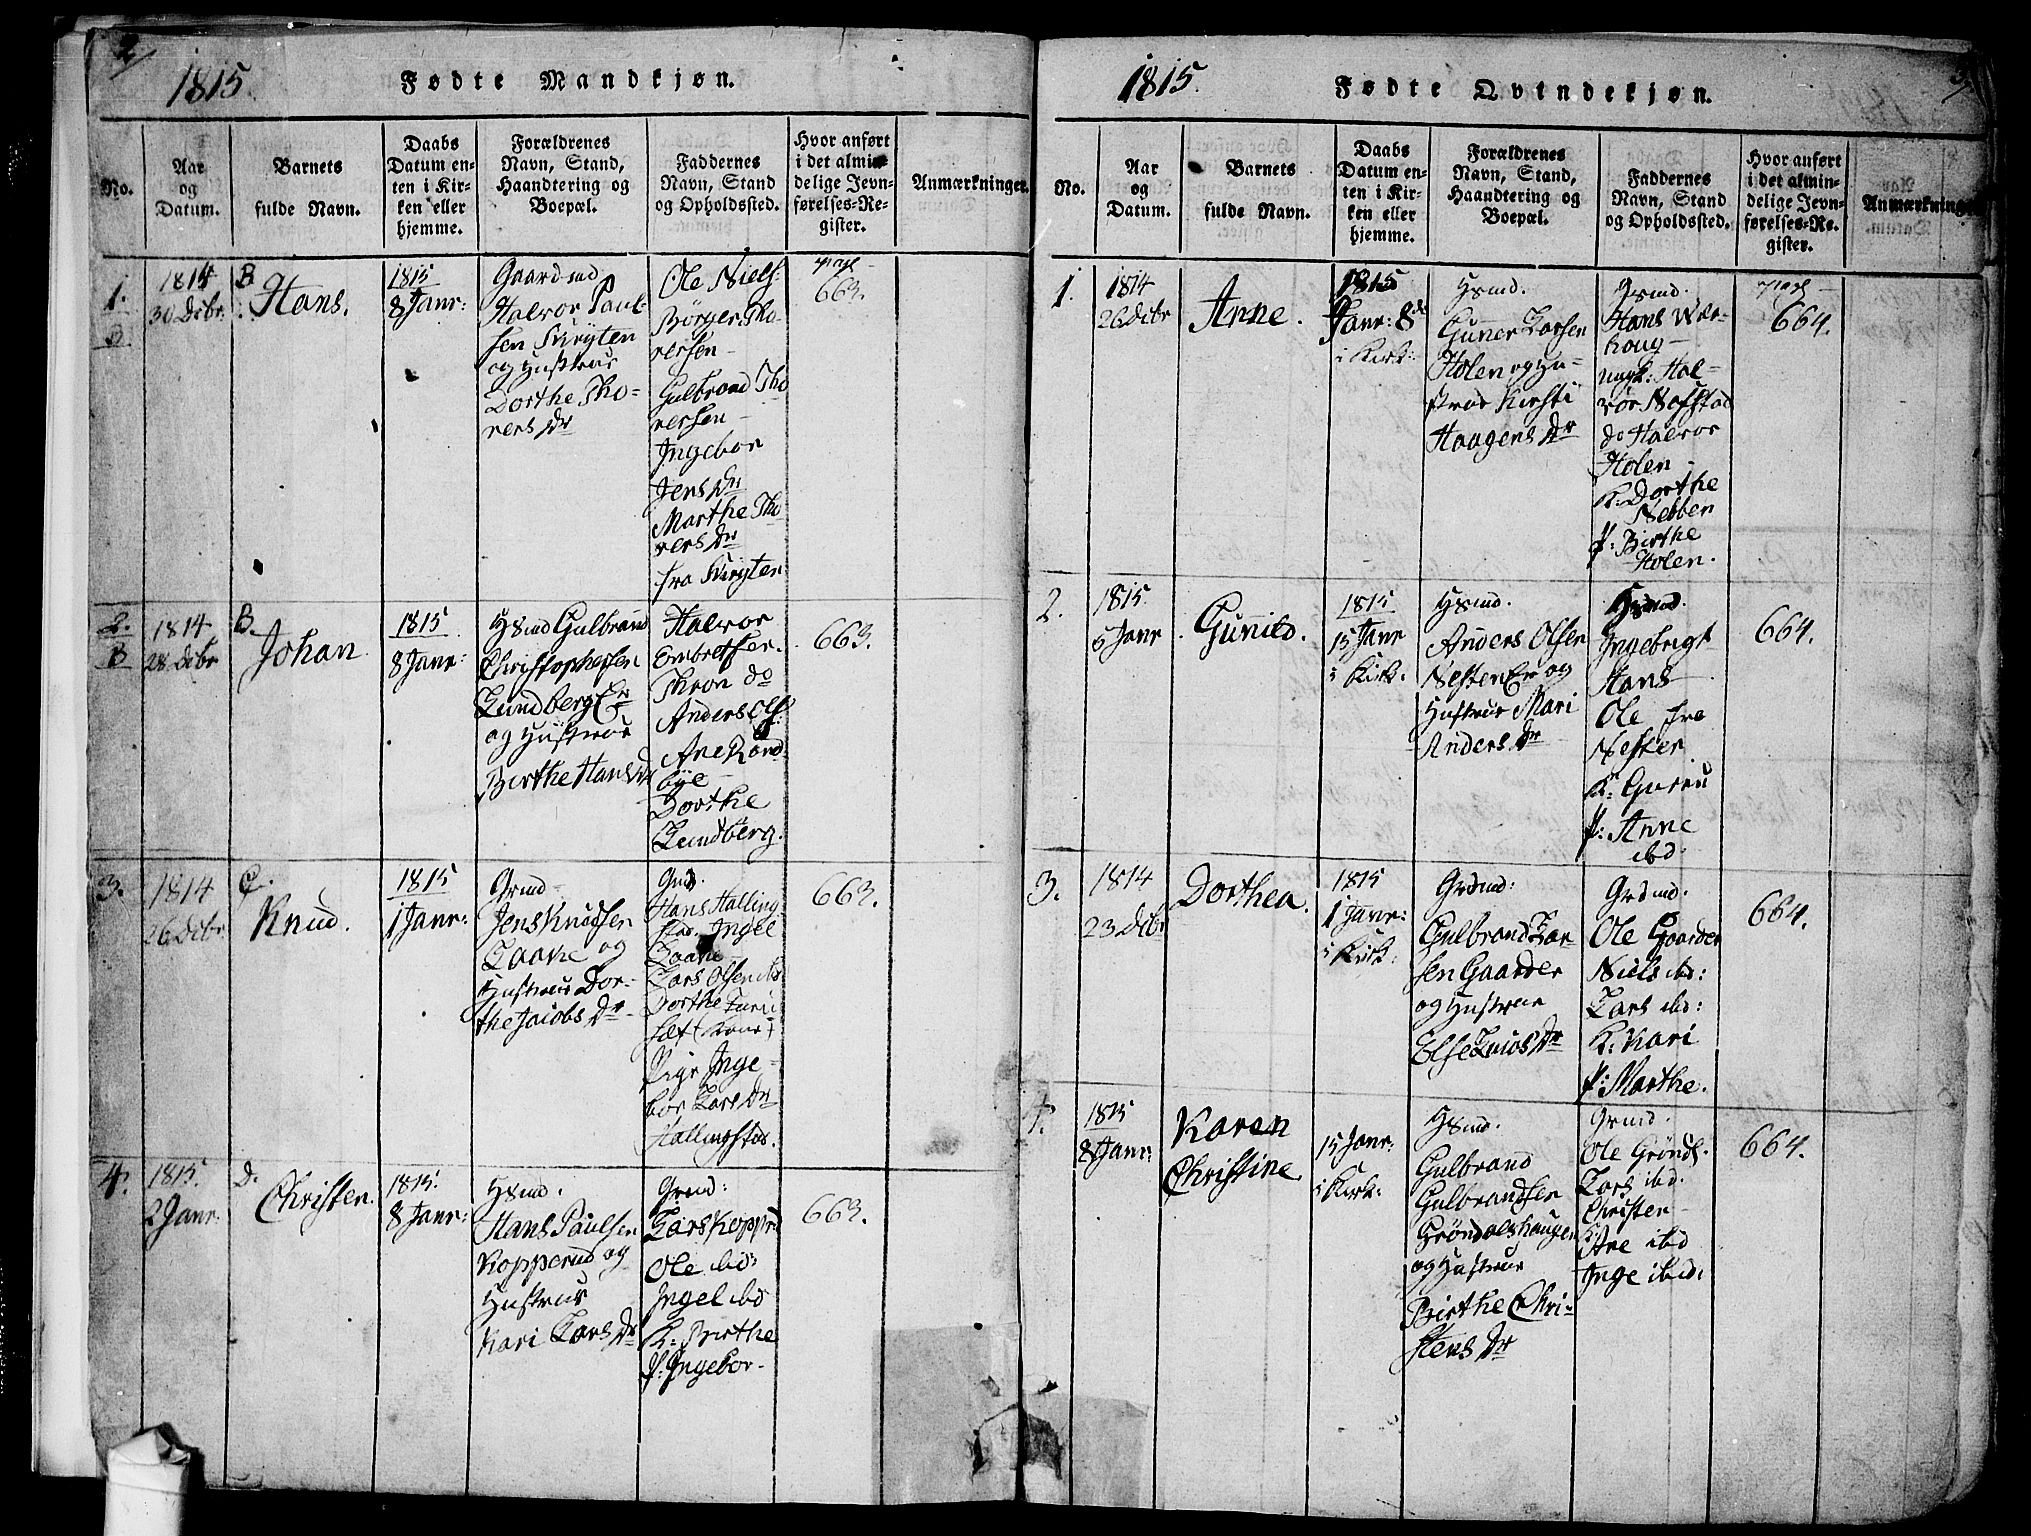 2
1815.
Fødte Mandkjøn.
No.
Aar
og
Datum.
Barnets
fulde Navn.
Daabs
Datum en-
ten i Kir-
ken eller
hjemme.
Forældrenes
Navn, Stand,
Haandtering og
Boepæl.
Faddernes
Navn, Stand
og Opholdssted.
Hvor anført
i det almin-
delige Jevn-
førelses-Re-
gister.
Anmærkninger.
1.
B.
1814
30 Dcbr.
B.
Hans.
1815
8 Janr:
Gaardmd
Halvor Paul-
sen
og Hustrue
Dorthe Tho-
rers Dr
Ole Niels:
Børger Tho-
rersen
Gulbrand Tho
rersen
Ingebor
Jens Dr
Marthe Tho-
rers Dr
fra
pag
663.
2.
B
1814
28 Dcbr
B.
Johan.
1815
8 Janr:
Hsmd Gulbrand
Christophersen
Lundberg Er
og Hustrue
Birthe Hans Dr
Halvor
Embretsen.
Thron do
Anders Ols:
Ane Rand-
bye
Dorthe
Lundberg.
663.
3.
1814
26 Dcbr
C.
Knud.
1815
1 Janr:
Grmd
Jens Knudsen
Laane og
Hustrue Dor-
the Jacobs Dr
Hans Halling-
stad. Ingel
Laane
Lars Olsen ibd
Dorthe
Pige Inge-
bor Lars Dr
Hallingstad.
663.
4.
1815.
2 Janr.
D.
Christen.
1815.
8 Janr:
Hsmd.
Hans Paulsen
Kopperud og
Hustrue
Kari Lars Dr
Grmd:
Lars Kopprd
Ole ibd:
Ingel ibd
K: Birthe
P: Ingebor-
663.
3
1815.
Fødte Qvindekjøn.
No.
Aar
og
Datum.
Barnets
fulde Navn.
Daabs
Datum en-
ten i Kir-
ken eller
hjemme.
Forældrenes
Navn, Stand,
Haandtering og
Boepæl.
Faddernes
Navn, Stand
og Opholdssted.
Hvor anført
i det almin-
delige Jevn-
førelses-Re-
gister.
Anmærkninger
1.
1814
26 Dcbr
Anne.
1815
Janr: 8de
i Kirk:
Hsmd.
Guner Larsen
Holen og Hu-
strue Kirsti
Haagens Dr
Grmd.
Hans
houg
ungk: Hal-
vor Nofstad
do Halvor
Holen
K: Dorthe
Nebben
P: Birthe
Holen.
pag
664.
2.
1815
5 Janr
Gunild.
1815
15 Janr
i Kirk.
Hsmd.
Anders Olsen
Nesten Er og
Hustrue Mari
Anders Dr
Hsmd.
Ingebrigt
Hans
Ole fra
Nesten
K: Guren
P: Anne
ibd:
664.
3.
1814
23 Dcbr
Dorthea.
1815
1 Janr:
i Kirk:
Grdmd:
Gulbrand Lar-
sen Gaarder
og Hustrue
Else Lars Dr
Grdmd.
Ole Gaarder
Niels ibd:
Lars ibd:
K: Kari
P: Marthe.
664.
4.
1815
8 Janr:
Karen
Christine
15 Janr:
i Kirk:
Hsmd.
Gulbrand
Gulbrandsen
Grøndalshaugen
og Hustrue
Birthe Chri-
stens Dr
Grmd.
Ole Grønds.
Lars ibd.
Christen
Ane ibd
Inge ibd:
664.